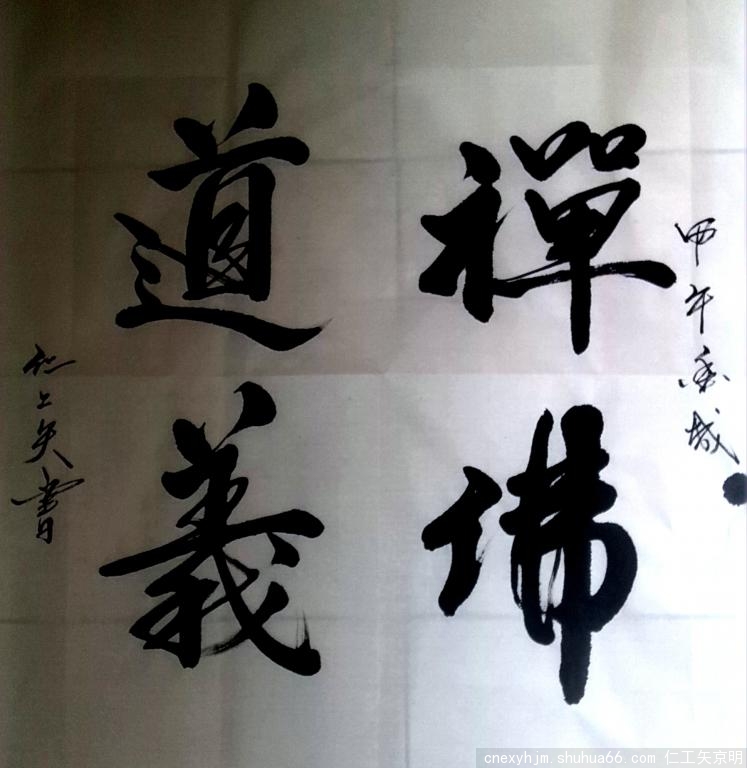 甲午香城
禪佛
道義
仁工矢書
cnexyhjm.shuhua66.com 仁工矢京明